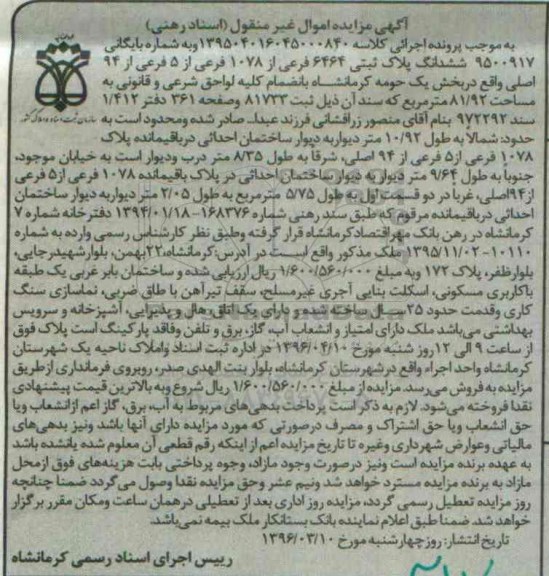 آگهی مزایده اموال غیر منقول (اسناد رهنی)
به موجب پرونده اجرائی کلاسه ۱۳۹۵۰۴۰۱۶۰۴۵۰۰۰۸۴۰ وبه شماره بایگانی
۹۵۰۰۹۱۷ ششدانگ پلاک ثبتی ۶۴۶۴ فرعی از ۱۰۷۸ فرعی از ۵ فرعی از ۹۴
اصلی واقع دربخش یک حومه کرمانشاه بانضمام کلیه لواحق شرعی و قانونی به
مساحت ۸۱/۹۲ مترمربع که سند آن ذیل ثبت ۸۱۷۳۳ وصفحه ۳۶۱ دفتر ۱/۴۱۲
سند ۹۷۲۲۹۲ بنام آقای منصور زرافشانی فرزند عبدا... صادر شده ومحدود است به
حدود: شمالا به طول ۱۰/۹۲ متر دیواربه دیوار ساختمان احداثی درباقیمانده پلاک
۱۰۷۸ فرعی از ۵ فرعی از ۹۴ اصلی، شرقا به طول ۸/۳۵ متر درب ودیوار است به خیابان موجود،
جنوبا به طول ۹/۶۴ متر دیوار به دیوار ساختمان احداثی در پلاک باقیمانده ۱۰۷۸ فرعی از ۵ فرعی
از ۹۴اصلی، غربا در دو قسمت اول به طول ۵/۷۵ مترمربع به طول ۲/۰۵ متر دیواربه دیوار ساختمان
احداثی درباقیمانده مرقوم که طبق سند رهنی شماره ۱۶۸۳۷۶-۱۳۹۴/۰۱/۱۸ دفترخانه شماره ۷
کرمانشاه در رهن بانک مهراقتصادکرمانشاه قرار گرفته وطبق نظر کارشناس رسمی وارده به شماره
۱۰۱۱۰-۱۳۹۵/۱۱/۰۲ ملک مذکور واقع است در آدرس:کرمانشاه،۲۲بهمن، بلوارشهیدرجایی،
بلوارظفر، پلاک ۱۷۲ وبه مبلغ ۱/۶۰۰/۵۶۰/۰۰۰ ریال ارزیابی شده و ساختمان بابر غربی یک طبقه
باکاربری مسکونی، اسکلت بنایی آجری غیرمسلح، سقف تیرآهن با طاق ضربی، نماسازی سنگ
کاری وقدمت حدود ۲۵سال ساخته شده و دارای یک اتاق، هال و پذیرایی، آشپزخانه و سرویس
بهداشتی می‌باشد ملک دارای امتیاز و انشعاب آب، گاز، برق و تلفن وفاقد پارکینگ است پلاک فوق
از ساعت ۹ الی ۱۲روز شنبه مورخ ۱۳۹۶/۰۴/۱۰ در اداره ثبت اسناد واملاک ناحیه یک شهرستان
کرمانشاه واحد اجراء واقع درشهرستان کرمانشاه، بلوار بنت الهدی صدر، روبروی فرمانداری ازطریق
مزایده به فروش می‌رسد. مزایده از مبلغ ۱/۶۰۰/۵۶۰/۰۰۰ ریال شروع وبه بالاترین قیمت پیشنهادی
نقدا فروخته می‌شود. لازم به ذکر است پرداخت بدهی‌های مربوط به آب، برق، گاز اعم ازانشعاب ویا
حق انشعاب ویا حق اشتراک و مصرف درصورتی که مورد مزایده دارای آنها باشد ونیز بدهی‌های
مالیاتی وعوارض شهرداری وغیره تا تاریخ مزایده اعم از اینکه رقم قطعی آن معلوم شده یانشده باشد
به عهده برنده مزایده است ونیز درصورت وجود مازاد، وجوه پرداختی بابت هزینه‌های فوق ازمحل
مازاد به برنده مزایده مسترد خواهد شد ونیم عشر وحق مزایده نقدا وصول می‌گردد ضمنا چنانچه
روز مزایده تعطیل رسمی گردد، مزایده روز اداری بعد از تعطیلی درهمان ساعت ومکان مقرر برگزار
خواهد شد. ضمنا طبق اعلام نماینده بانک بستانکار ملک بیمه نمی‌باشد.
تاریخ انتشار: روزچهارشنبه مورخ ۱۳۹۶/۰۳/۱۰
رییس اجرای اسناد رسمی کرمانشاه